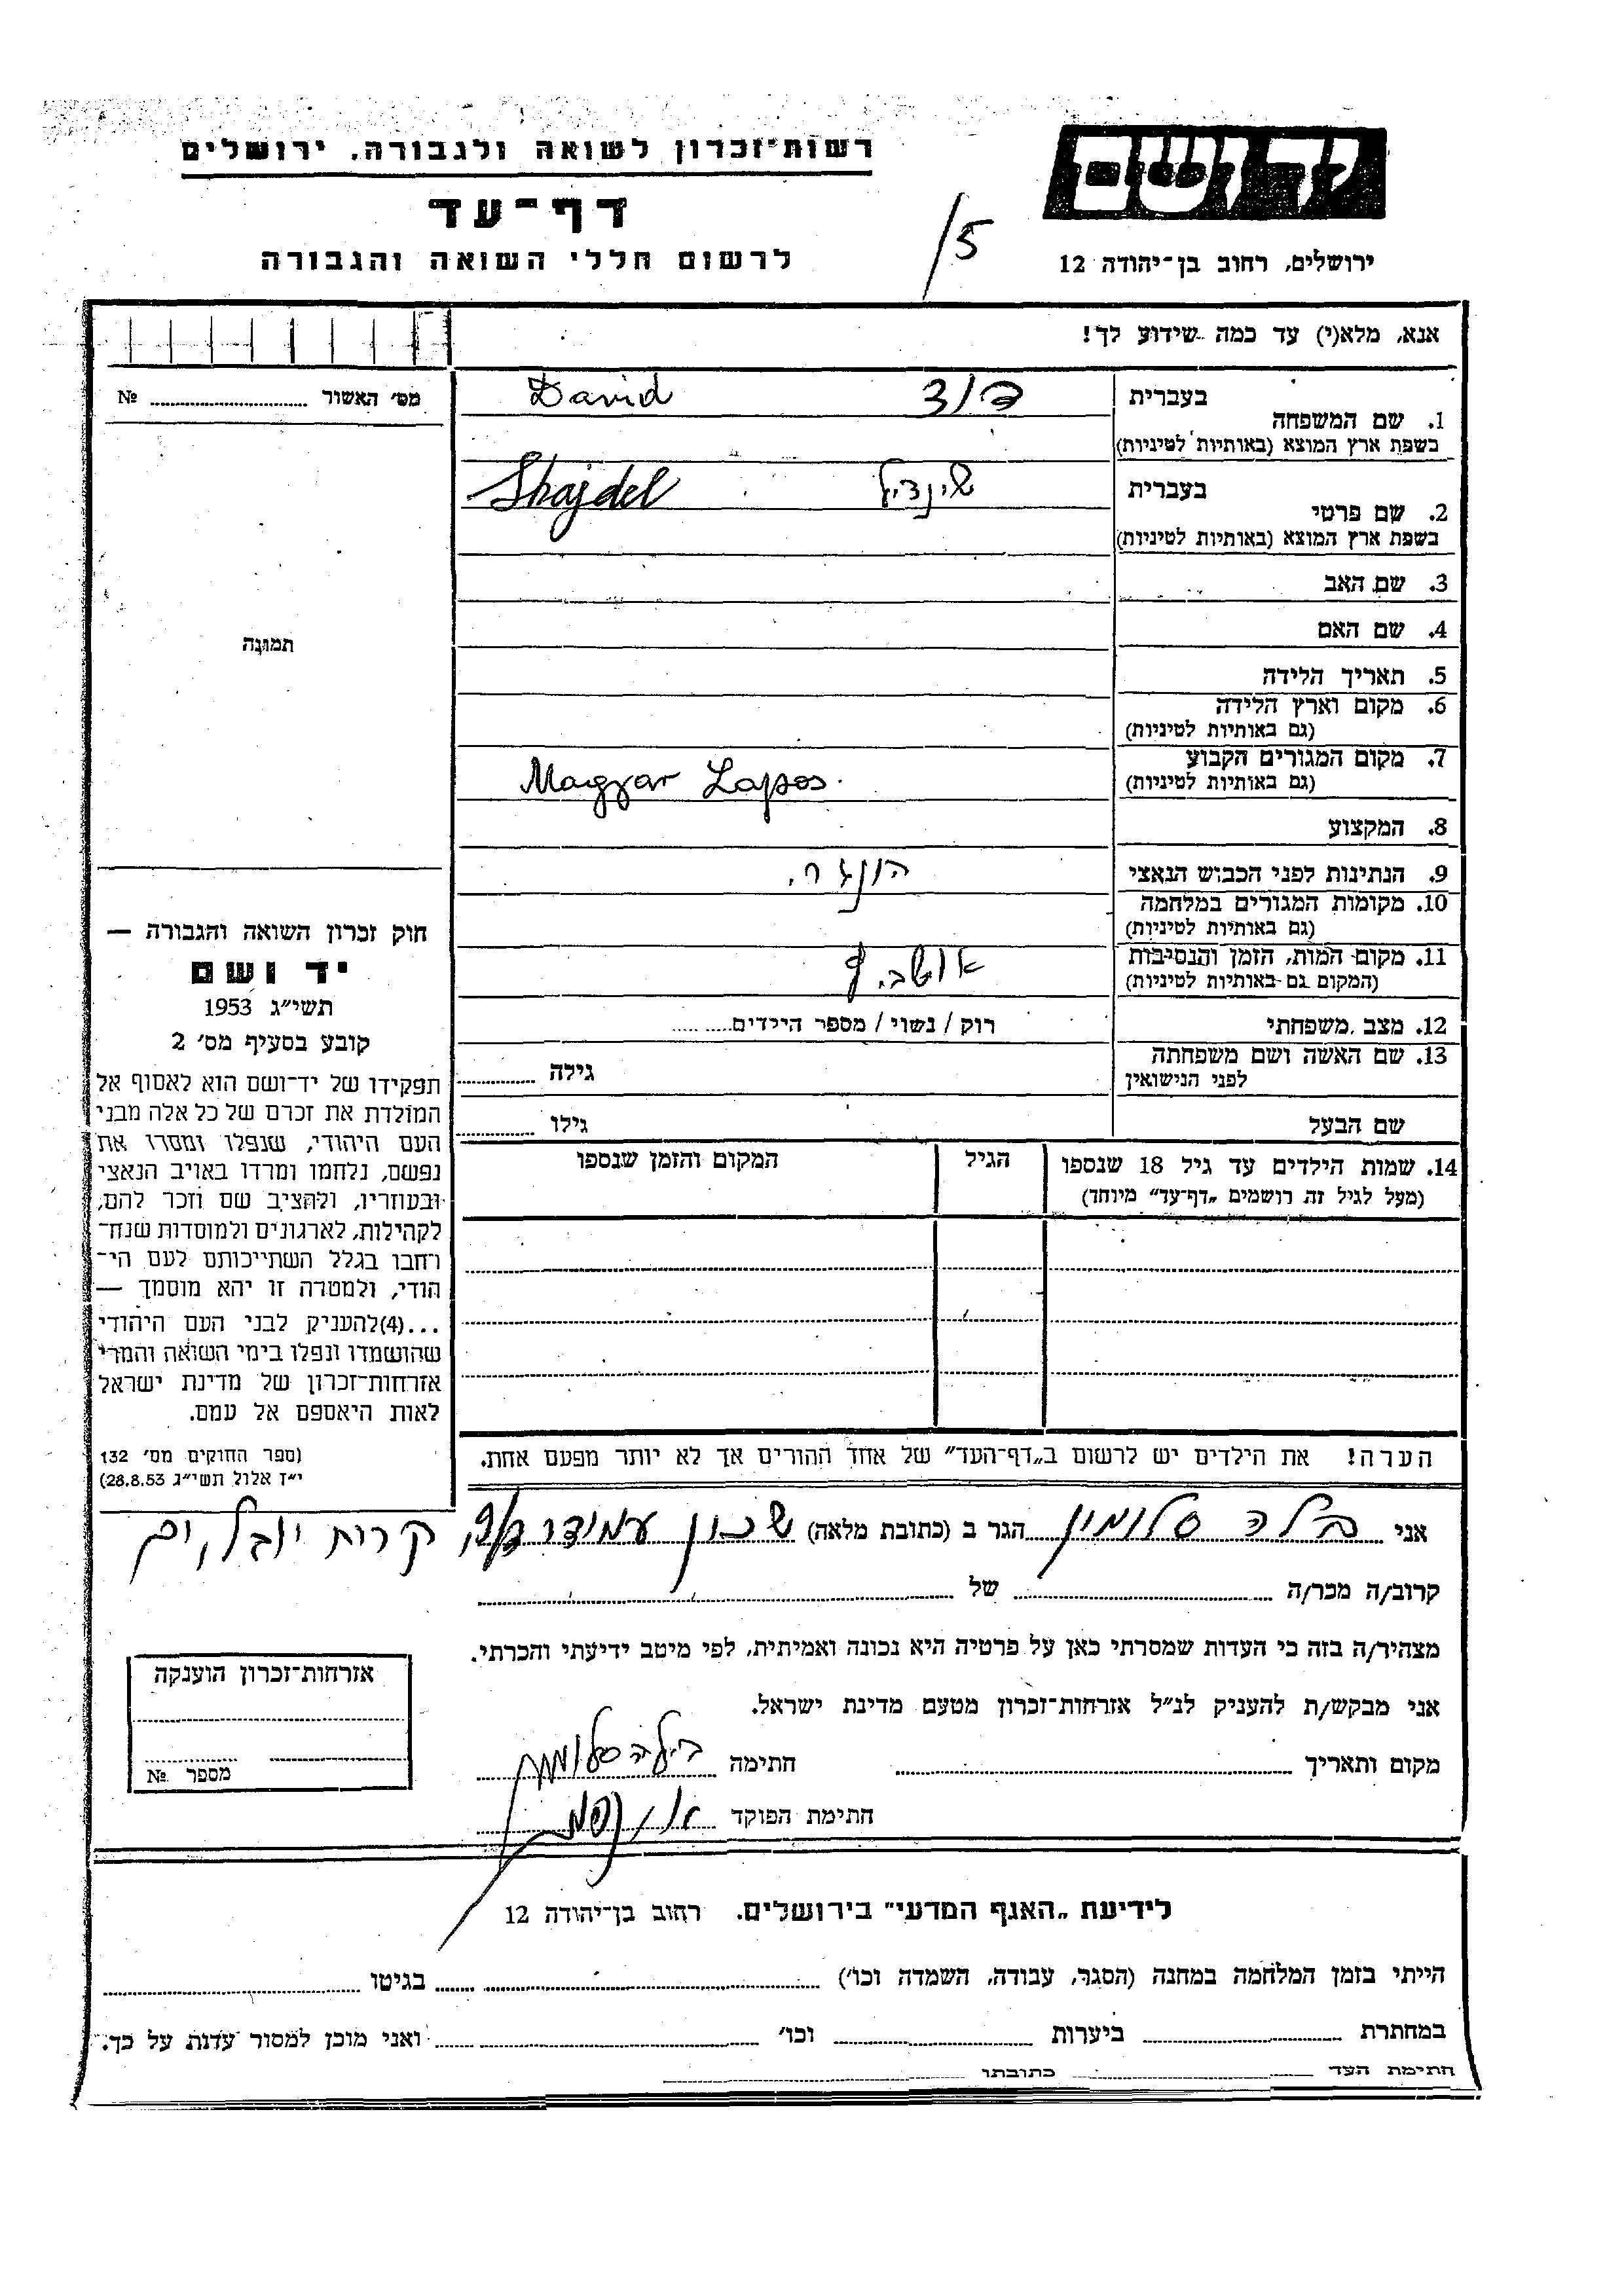 רשות־זכרון לשואה ולגבורה, ירושלים
דף־עד
לרשום חללי השואה והגבורה
יד ושם
ירושלים, רחוב בן־יהודה 12
/5
אנא, מלא(י) עד כמה שידוע לך!
מס' האשור № ........
תמונה
1. שם המשפחה בעברית דוד David
בשפת ארץ המוצא (באותיות לטיניות)
2. שם פרטי בעברית שינדיל Shajdel
בשפת ארץ המוצא (באותיות לטיניות)
3. שם האב
4. שם האם
5. תאריך הלידה
6. מקום וארץ הלידה
(גם באותיות לטיניות)
7. מקום המגורים הקבוע Magyar Lapos.
(גם באותיות לטיניות)
8. המקצוע
9. הנתינות לפני הכבוש הנאצי הונגר.
10. מקומות המגורים במלחמה
(גם באותיות לטיניות)
11. מקום המות, הזמן והנסיבות אושב.ץ
(המקום גם באותיות לטיניות)
12. מצב משפחתי רוק / נשוי / מספר הילדים........
13. שם האשה ושם משפחתה גילה ........
לפני הנישואין
שם הבעל גילו ........
14. שמות הילדים עד גיל 18 שנספו הגיל המקום והזמן שנספו
(מעל לגיל זה רושמים „דף־עד" מיוחד)
הערה! את הילדים יש לרשום ב„דף־העד" של אחד ההורים אך לא יותר מפעם אחת.
חוק זכרון השואה והגבורה —
יד ושם
תשי"ג 1953
קובע בסעיף מס' 2
תפקידו של יד־ושם הוא לאסוף אל
המולדת את זכרם של כל אלה מבני
העם היהודי, שנפלו ומסרו את
נפשם, נלחמו ומרדו באויב הנאצי
ובעוזריו, ולהציב שם וזכר להם,
לקהילות, לארגונים ולמוסדות שנח־
רחבו בגלל השתייכותם לעם הי־
הודי, ולמטרה זו יהא מוסמך —
...(4)להעניק לבני העם היהודי
שהושמדו ונפלו בימי השואה והמרי
אזרחות־זכרון של מדינת ישראל
לאות היאספם אל עמם.
(ספר החוקים מס' 132
י"ז אלול תשי"ג 28.8.53)
אני בלה סלומון הגר ב (כתובת מלאה) שכון עמידר קרית יובל, ים
קרוב/ה מכר/ה ........ של ........
מצהיר/ה בזה כי העדות שמסרתי כאן על פרטיה היא נכונה ואמיתית, לפי מיטב ידיעתי והכרתי.
אני מבקש/ת להעניק לנ"ל אזרחות־זכרון מטעם מדינת ישראל.
מקום ותאריך ........ חתימה בילה סלומון
חתימת הפוקד
אזרחות־זכרון הוענקה
מספר №
לידיעת „האגף המדעי" בירושלים. רחוב בן־יהודה 12
הייתי בזמן המלחמה במחנה (הסגר, עבודה, השמדה וכו') ........ בגיטו ........
במחתרת ........ ביערות ........ וכו' ........ ואני מוכן למסור עדות על כך.
חתימת העד ........ כתובתו ........